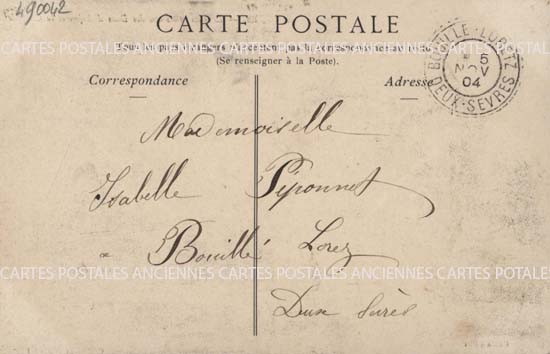 490042
CARTE POSTALE
Tous les pays étrangers n'acceptent pas la correspondance au recto
(Se renseigner à la Poste).
Correspondance
Adresse
BOUILLE-LORETZ
5
NOV
04
DEUX-SEVRES
Mademoiselle
Isabelle Piponnet
a Bouillé Lorez
Deux Sèvres
CARTES POSTALES ANCIENNES CARTES POSTALES ANCIENNES CARTES POTALE